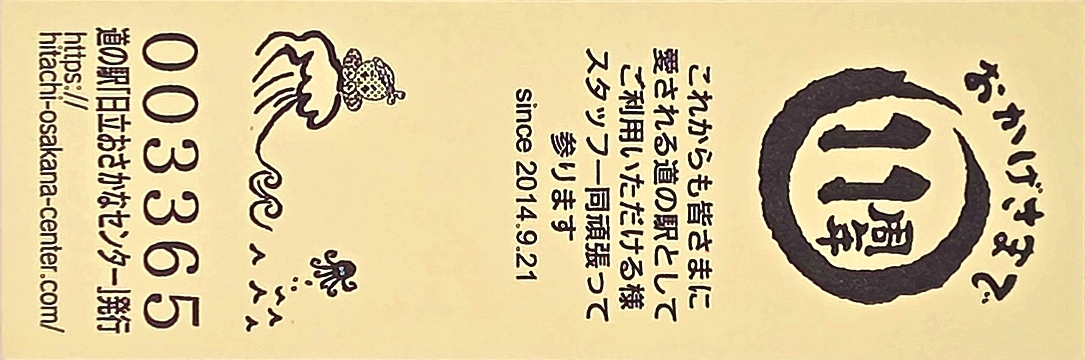 おかげさまで
11周年
これからも皆さまに
愛される道の駅として
ご利用いただける様
スタッフ一同頑張って
参ります
since 2014.9.21
003365
道の駅「日立おさかなセンター」発行
https://
hitachi-osakana-center.com/